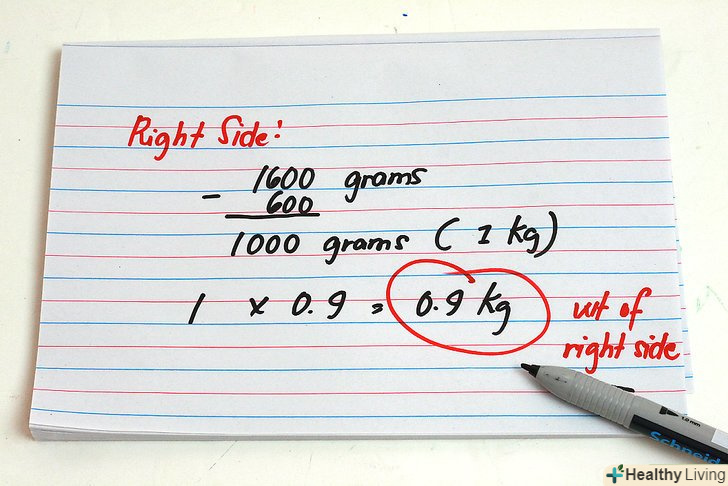 Right Side:
1600 grams
- 600
1000 grams ( 1 kg)
1 x 0.9 = 0.9 kg
wt of
right side
1.0 mm
Schneid
Healthy Living